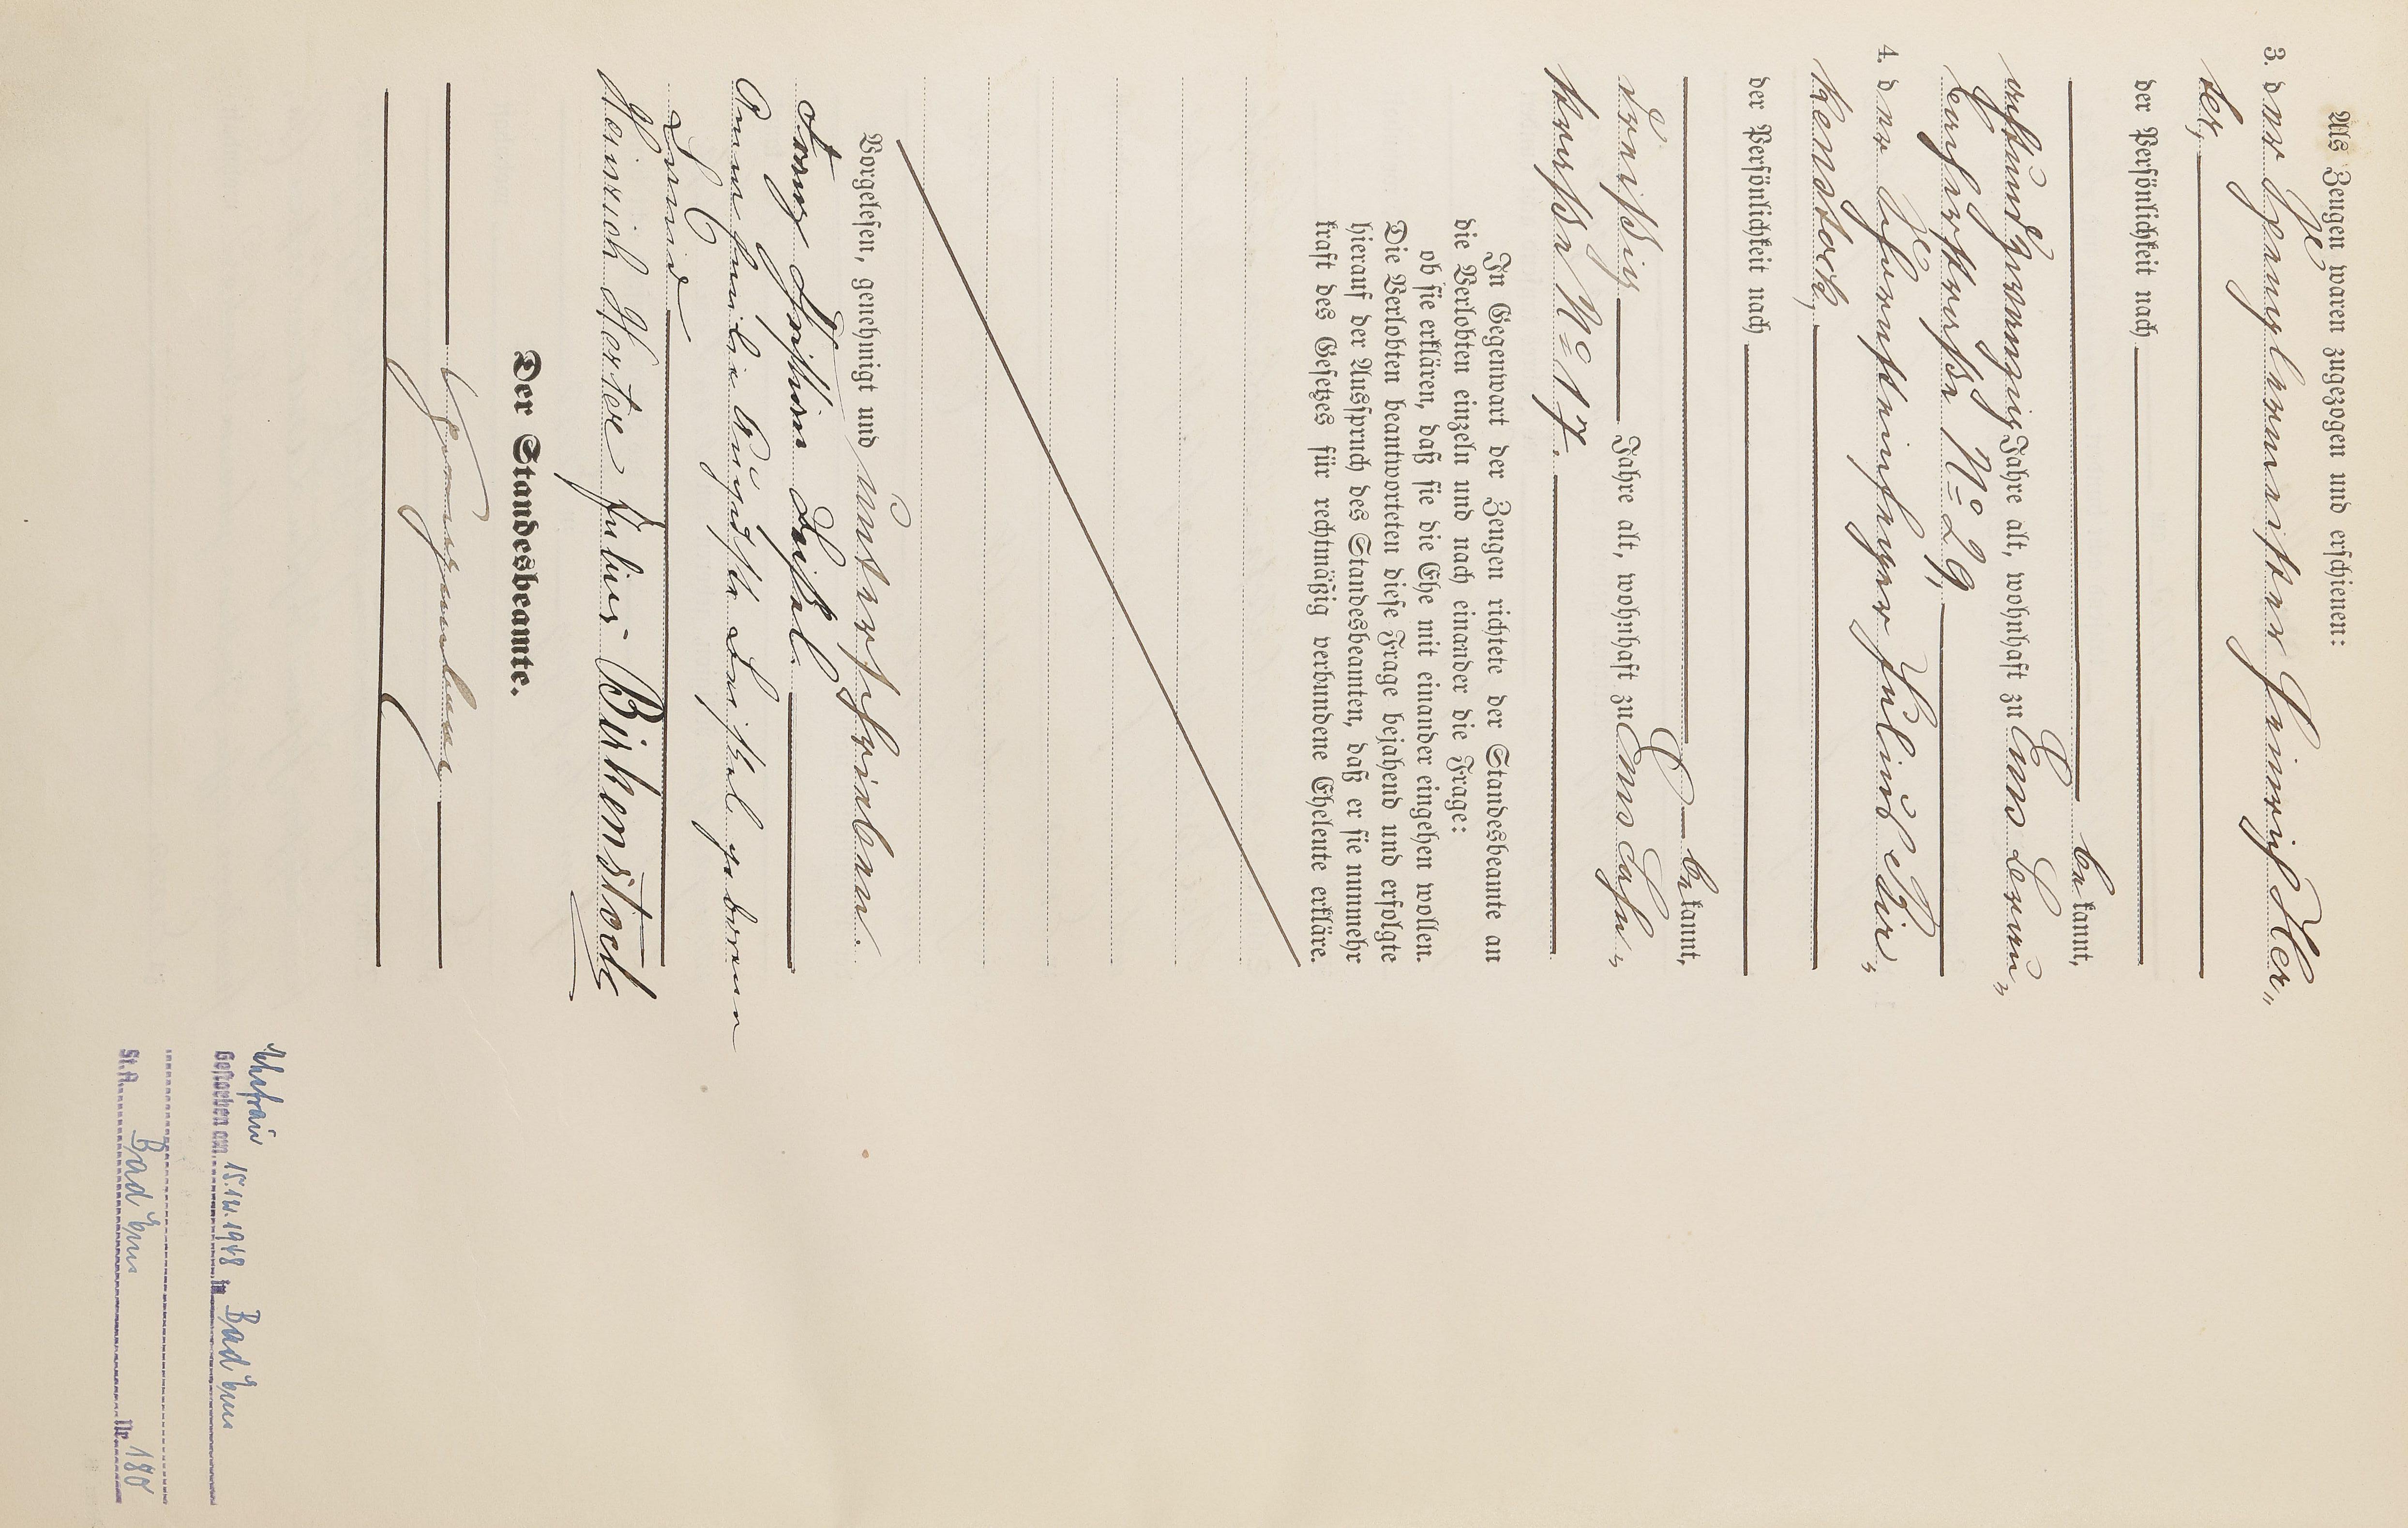 Als Zeugen waren zugezogen und erschienen:
3. der Zimmermeister Heinrich Her„
ter,
der Persönlichkeit nach
be kannt,
achtundzwanzig Jahre alt, wohnhaft zu Ems Lern„
Nº 29,
4. der Schornsteinfeger Julius Bir„
kenstock,
der Persönlichkeit nach
be kannt,
dreißig Jahre alt, wohnhaft zu Ems Lahn„
straße Nº 17.
In Gegenwart der Zeugen richtete der Standesbeamte an
die Verlobten einzeln und nach einander die Frage:
ob sie erklären, daß sie die Ehe mit einander eingehen wollen.
Die Verlobten beantworteten diese Frage bejahend und erfolgte
hierauf der Ausspruch des Standesbeamten, daß er sie nunmehr
kraft des Gesetzes für rechtmäßig verbundene Eheleute erkläre.
Vorgelesen, genehmigt und unterschrieben.
Anna Auguste geborene
Heinrich Herter Julius Birkenstock
Der Standesbeamte.
Ehefrau
Gestorben am 1948 in Bad Ems
St.A. Bad Ems Nr. 180